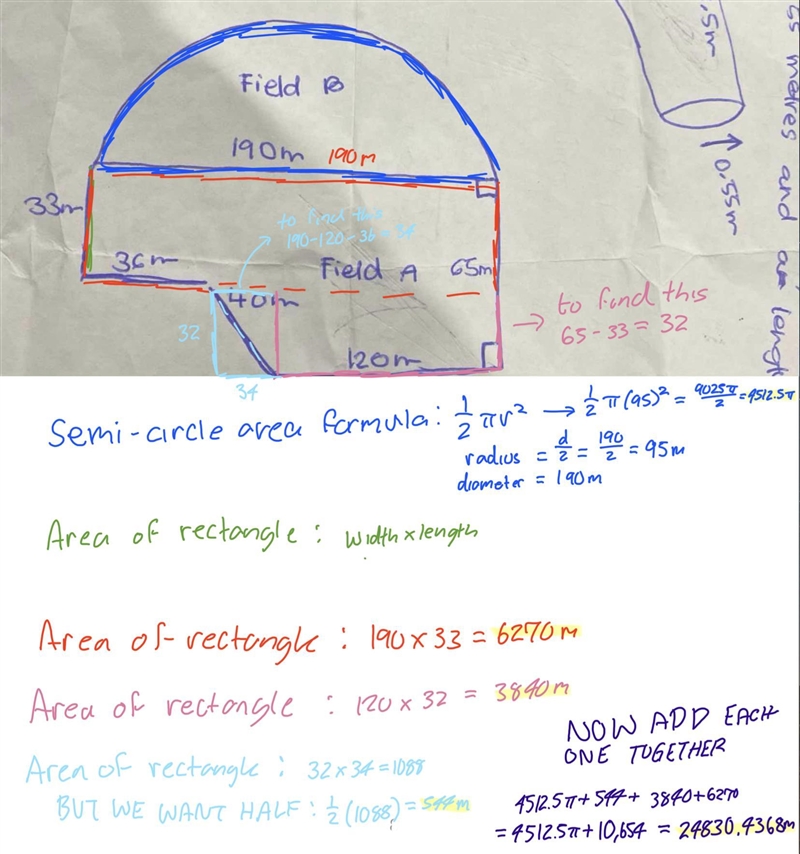 Field B
190m 190m
33m
to find this
190-120-36=34
36m
Field A 65m
40m
32
120m
34
→ to find this
65-33=32
.5m
0.55m
metres and a
length
Semi-circle area formula: 1/2 πr² → 1/2 π(95)² = 9025π/2 = 4512.5π
radius = d/2 = 190/2 = 95m
diameter = 190m
Area of rectangle: width x length
Area of rectangle: 190 x 33 = 6270m
Area of rectangle : 120 x 32 = 3840m
Area of rectangle : 32 x 34 = 1088
BUT WE WANT HALF: 1/2 (1088) = 544m
NOW ADD EACH
ONE TOGETHER
4512.5π + 544 + 3840 + 6270
= 4512.5π + 10,654 = 24830.4368m